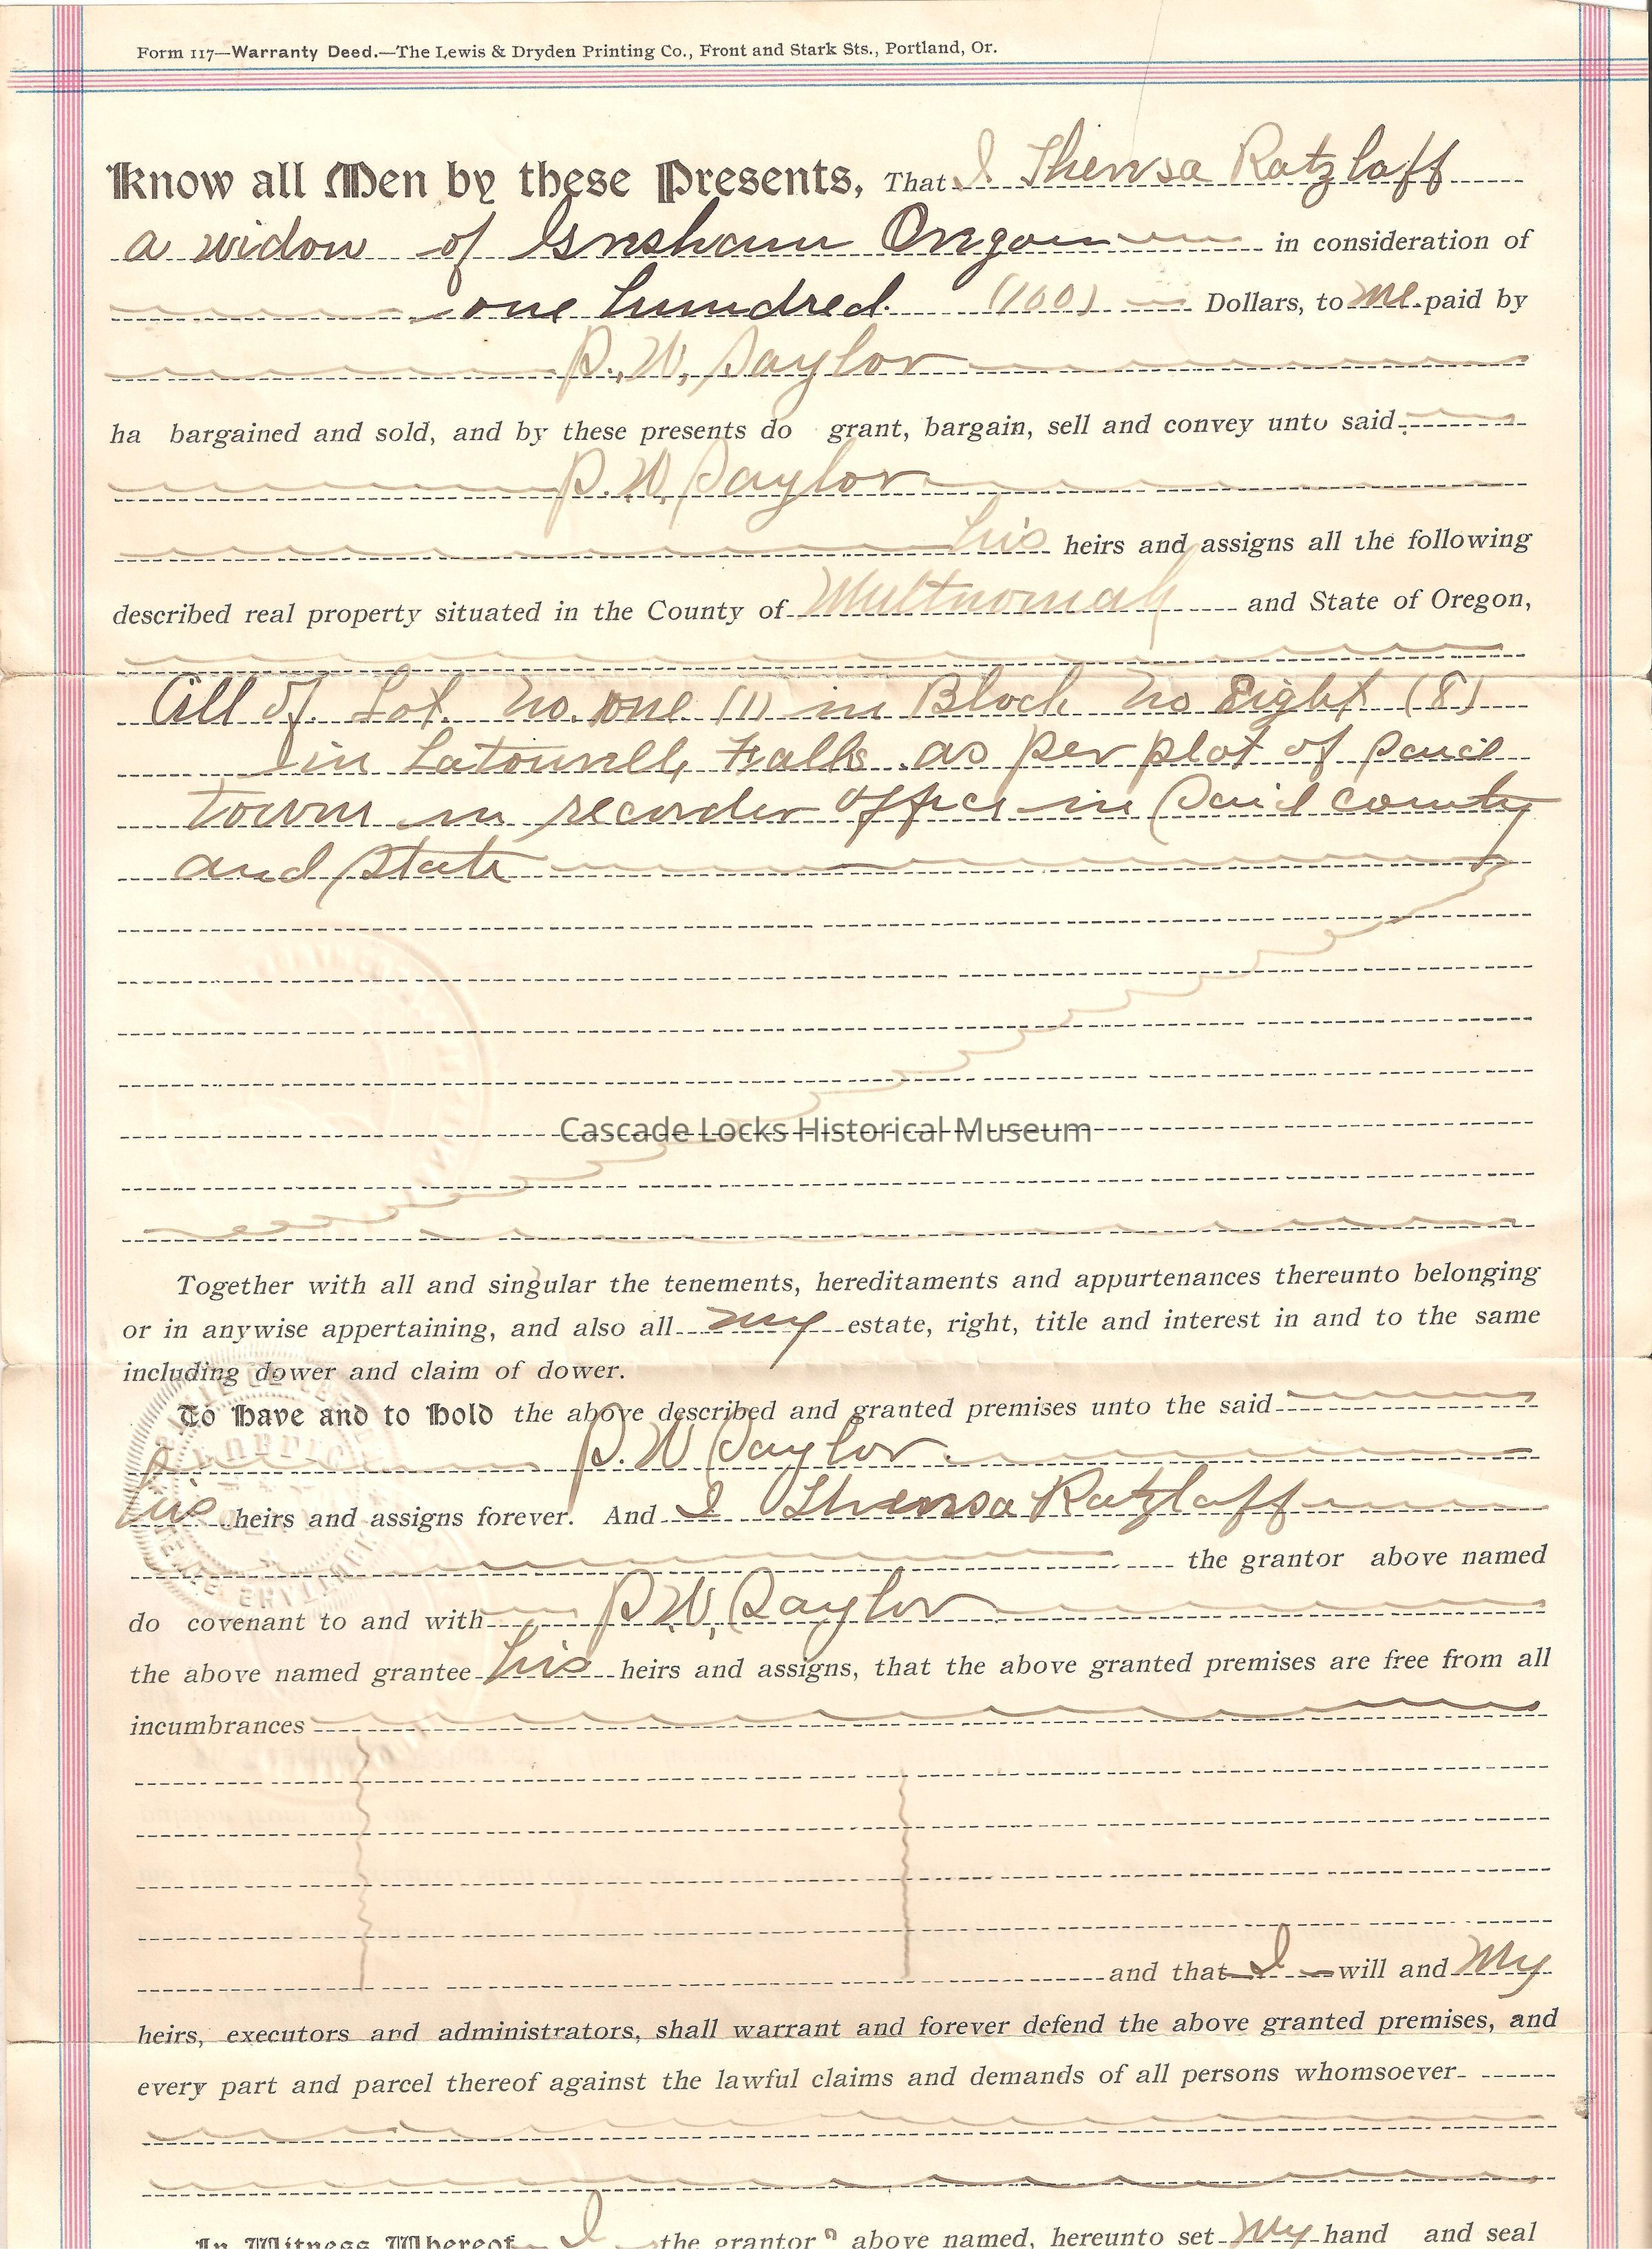 Form 117—Warranty Deed.—The Lewis & Dryden Printing Co., Front and Stark Sts., Portland, Or.
Know all Men by these Presents, That I Theresa Ratzlaff
a widow of Gresham Oregon in consideration of
one hundred (100) Dollars, to me paid by
P. W. Saylor
ha bargained and sold, and by these presents do grant, bargain, sell and convey unto said
P. W. Saylor
his heirs and assigns all the following
described real property situated in the County of Multnomah and State of Oregon,
All of Lot No. one (1) in Block No Eight (8)
in Latourell Falls as per plot of said
town in recorder office in said county
and state
Cascade Locks Historical Museum
Together with all and singular the tenements, hereditaments and appurtenances thereunto belonging
or in anywise appertaining, and also all my estate, right, title and interest in and to the same
including dower and claim of dower.
To Have and to Hold the above described and granted premises unto the said
P. W Saylor
his heirs and assigns forever. And I Theresa Ratzlaff
the grantor above named
do covenant to and with P. W. Saylor
the above named grantee his heirs and assigns, that the above granted premises are free from all
incumbrances
and that I will and My
heirs, executors and administrators, shall warrant and forever defend the above granted premises, and
every part and parcel thereof against the lawful claims and demands of all persons whomsoever
In Witness Whereof, I the grantor above named, hereunto set My hand and seal